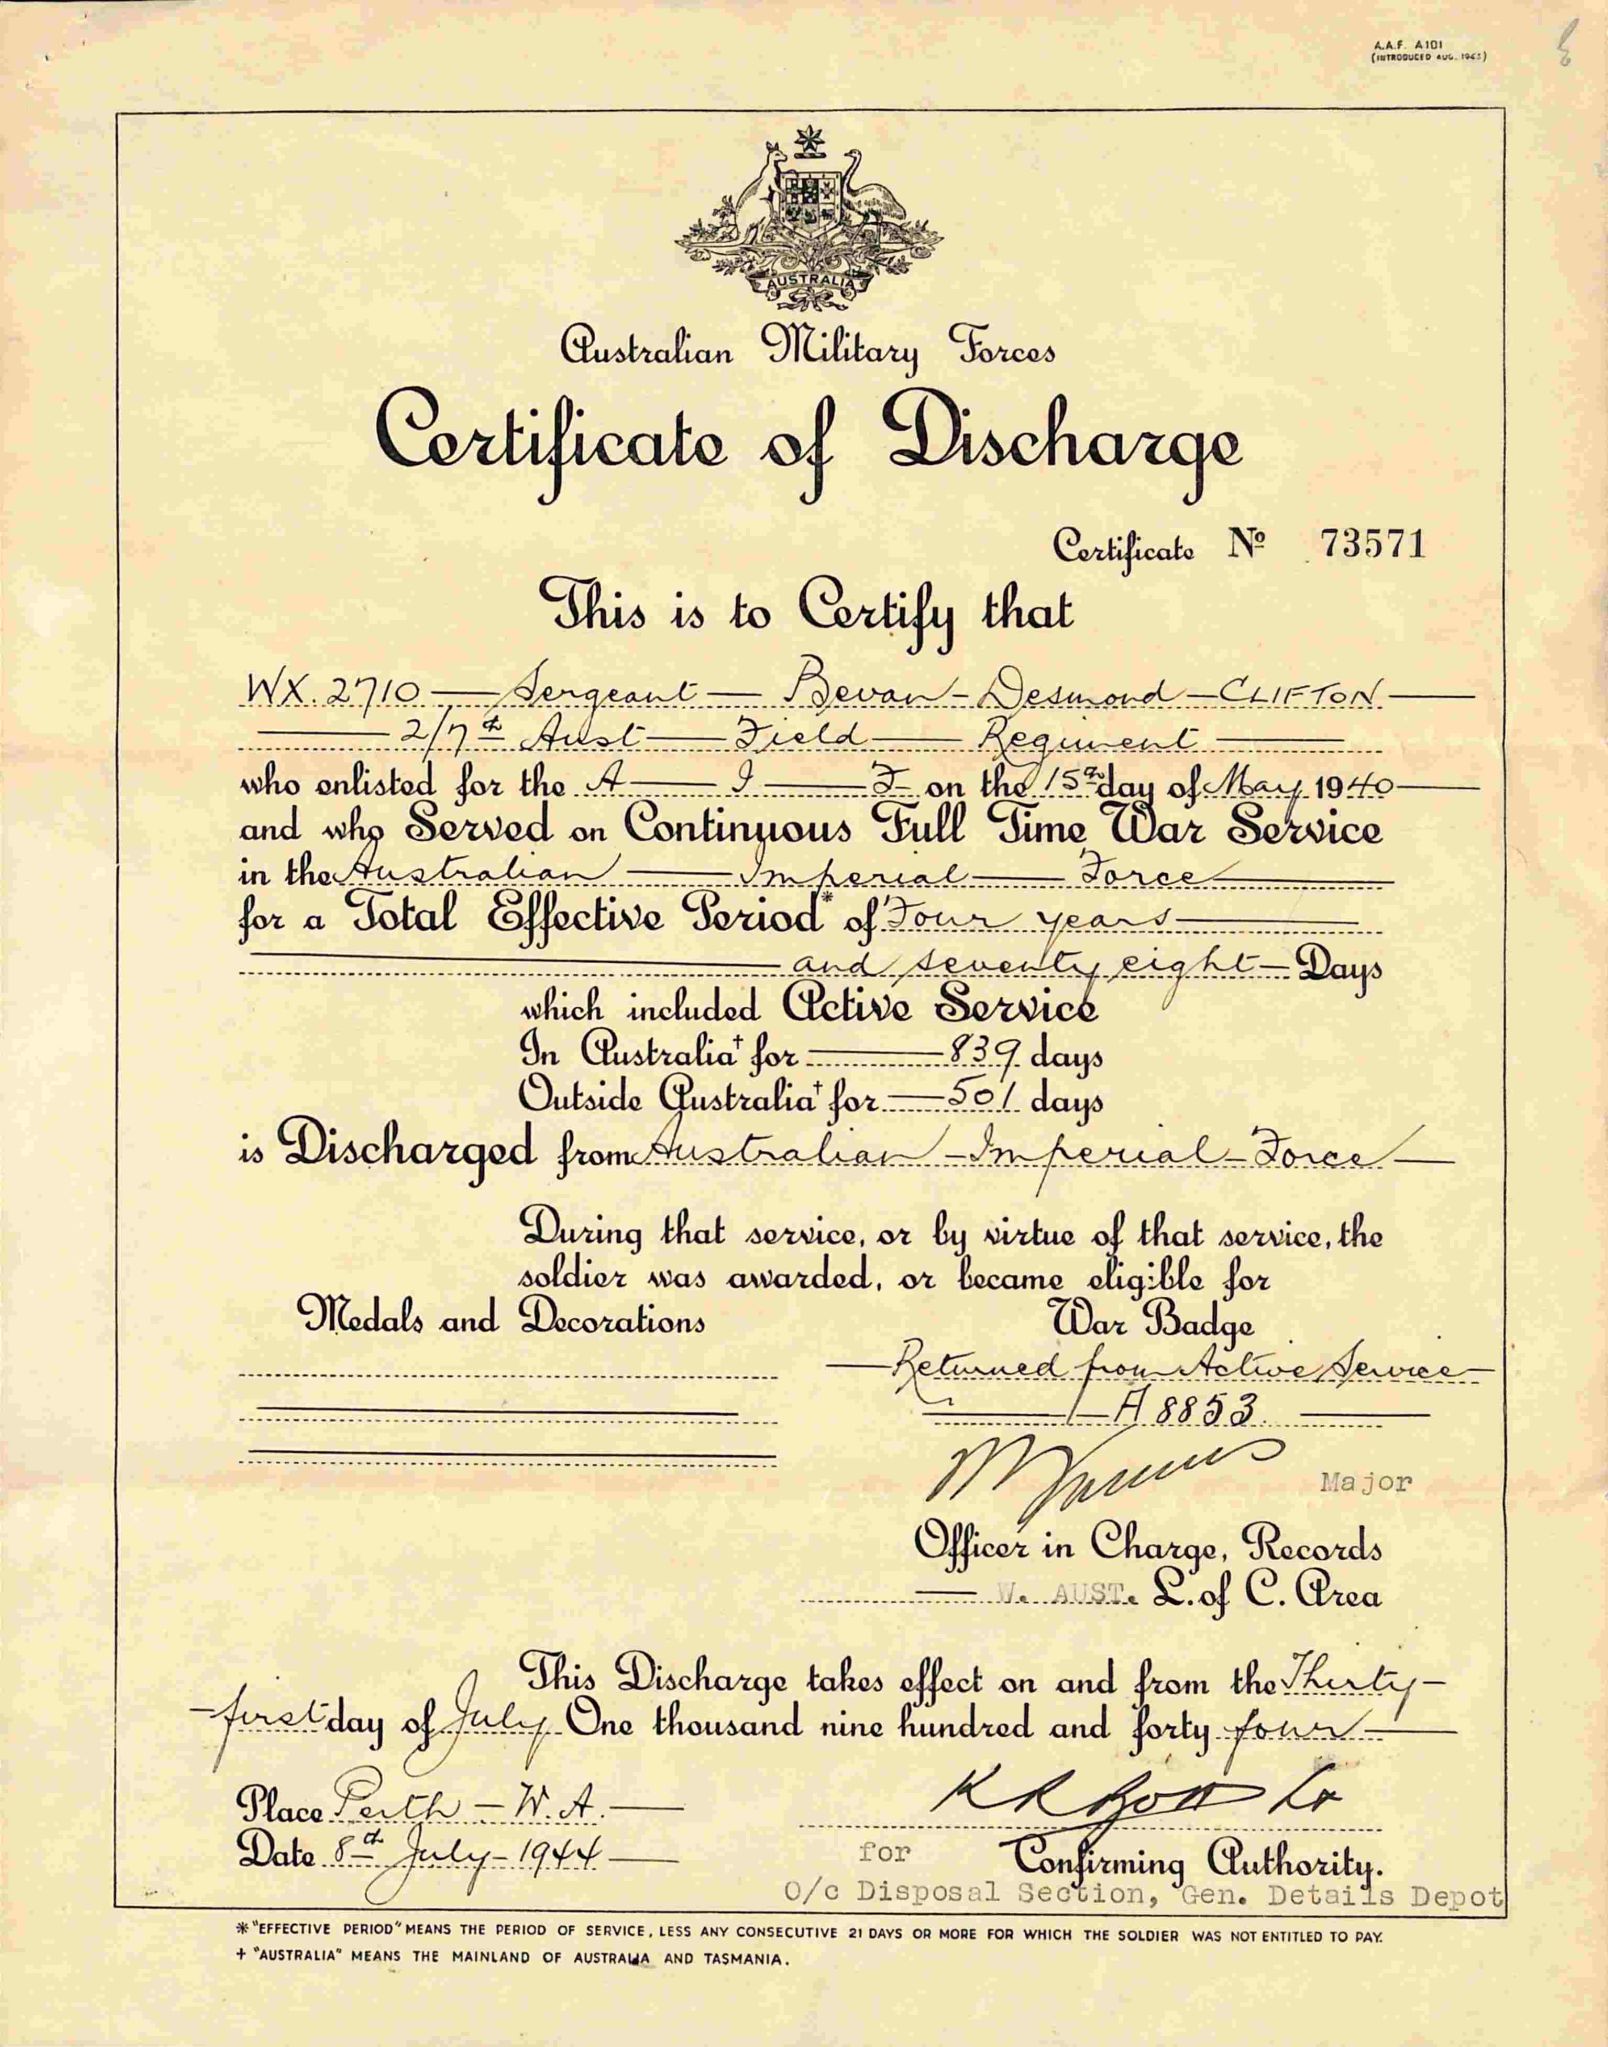 A.A.F. A101
(INTRODUCED AUG. 1943)
AUSTRALIA
Australian Military Forces
Certificate of Discharge
Certificate No 73571
This is to Certify that
WX.2710 — Sergeant — Bevan - Desmond - CLIFTON
2/7th Aust — Field — Regiment
who enlisted for the A — I — F on the 15th day of May 1940
and who Served on Continuous Full Time War Service
in the Australian — Imperial — Force
for a Total Effective Period* of Four years
and seventy eight — Days
which included Active Service
In Australia+ for — 839 days
Outside Australia+ for — 501 days
is Discharged from Australian - Imperial - Force
During that service, or by virtue of that service, the
soldier was awarded, or became eligible for
Medals and Decorations War Badge
Returned from Active Service
A 8853
Major
Officer in Charge, Records
W. AUST. L. of C. Area
This Discharge takes effect on and from the Thirty-
-first day of July One thousand nine hundred and forty four
Place Perth - W.A.
Date 8th July - 1944
for Confirming Authority.
O/c Disposal Section, Gen. Details Depot
* "EFFECTIVE PERIOD" MEANS THE PERIOD OF SERVICE, LESS ANY CONSECUTIVE 21 DAYS OR MORE FOR WHICH THE SOLDIER WAS NOT ENTITLED TO PAY.
+ "AUSTRALIA" MEANS THE MAINLAND OF AUSTRALIA AND TASMANIA.